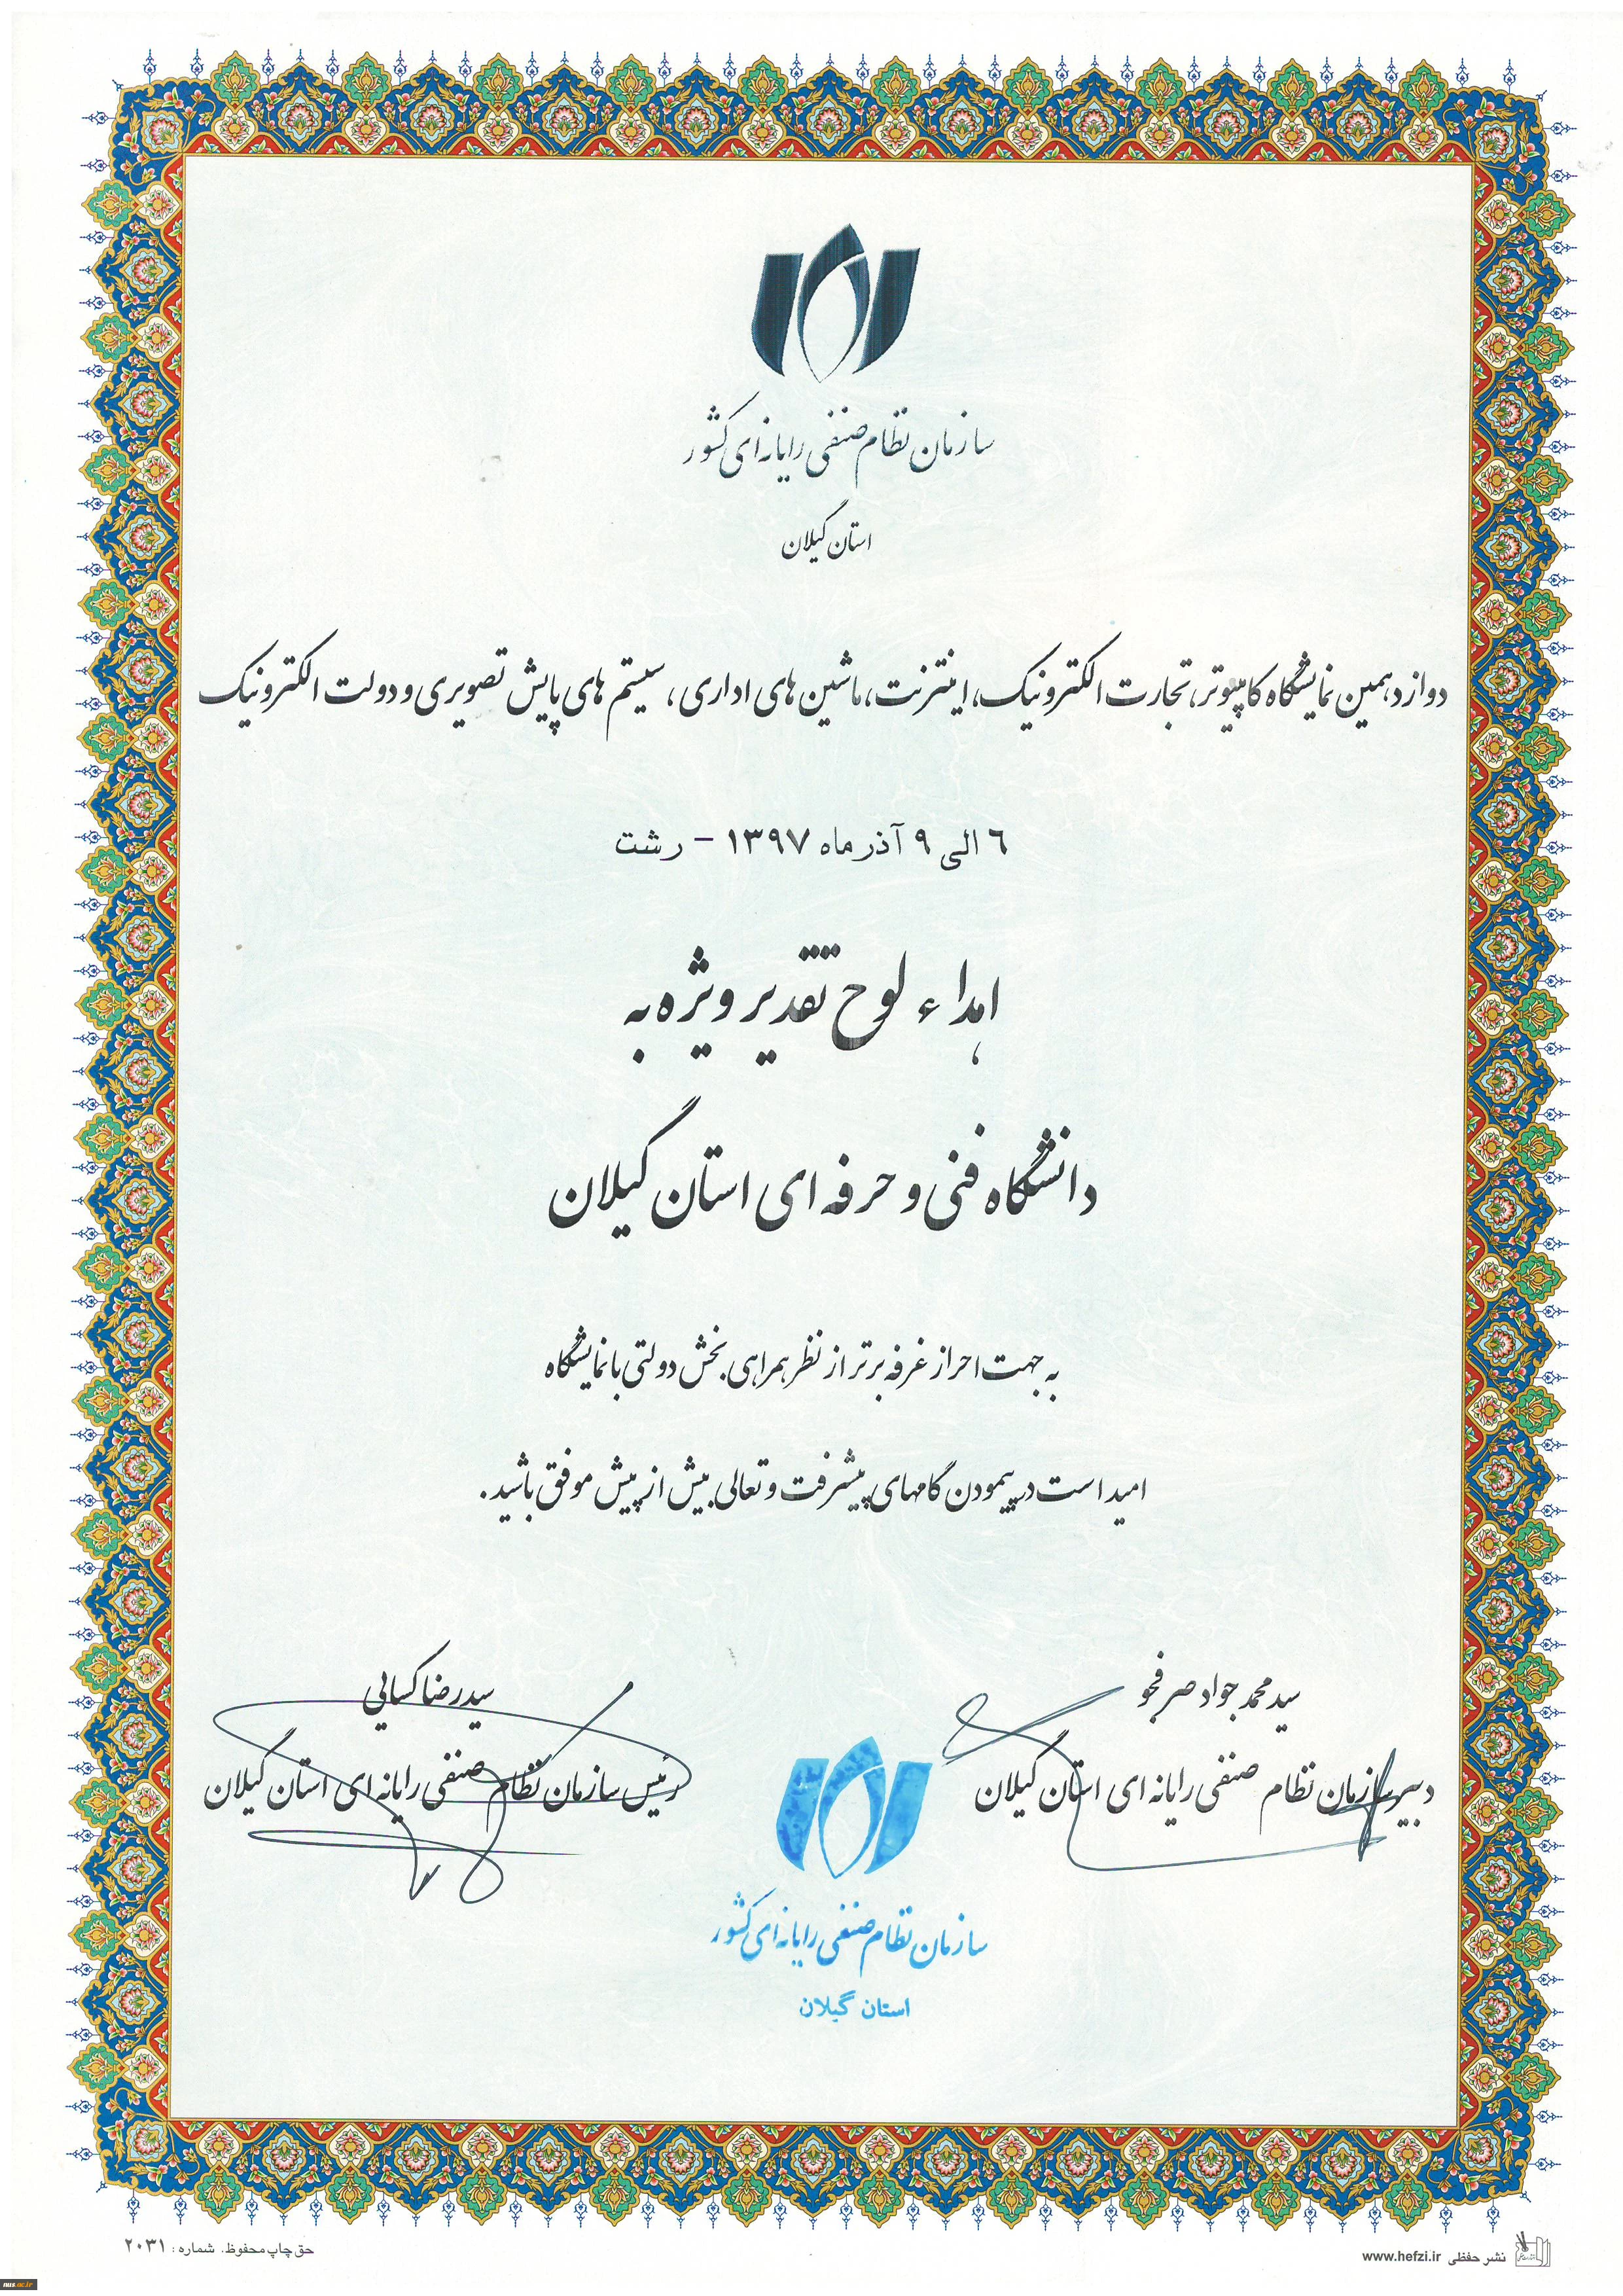 سازمان نظام صنفی رایانه ای کشور
استان گیلان
دوازدهمین نمایشگاه کامپیوتر، تجارت الکترونیک، اینترنت، ماشین های اداری، سیستم های پایش تصویری و دولت الکترونیک
۶ الی ۹ آذر ماه ۱۳۹۷ - رشت
اهداء لوح تقدیر ویژه به
دانشگاه فنی و حرفه ای استان گیلان
به جهت احراز غرفه برتر از نظر همراهی بخش دولتی با نمایشگاه
امید است در پیمودن گامهای پیشرفت و تعالی بیش از پیش موفق باشید.
سید محمد جواد صرفجو
دبیر سازمان نظام صنفی رایانه ای استان گیلان
سید رضا کسایی
رئیس سازمان نظام صنفی رایانه ای استان گیلان
سازمان نظام صنفی رایانه ای کشور
استان گیلان
نشر حفظی www.hefzi.ir
حق چاپ محفوظ. شماره : ۲۰۳۱
nus.ac.ir